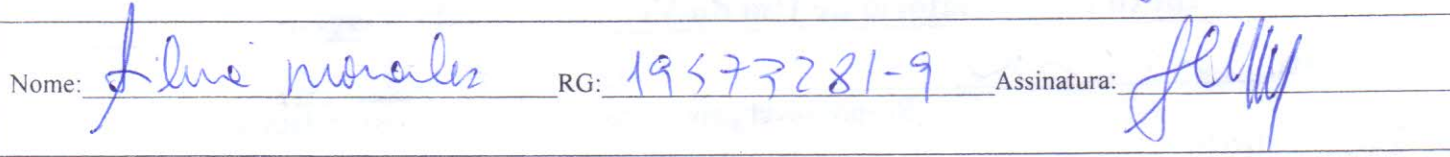 Nome: Silvia morales RG: 19573281-9 Assinatura: